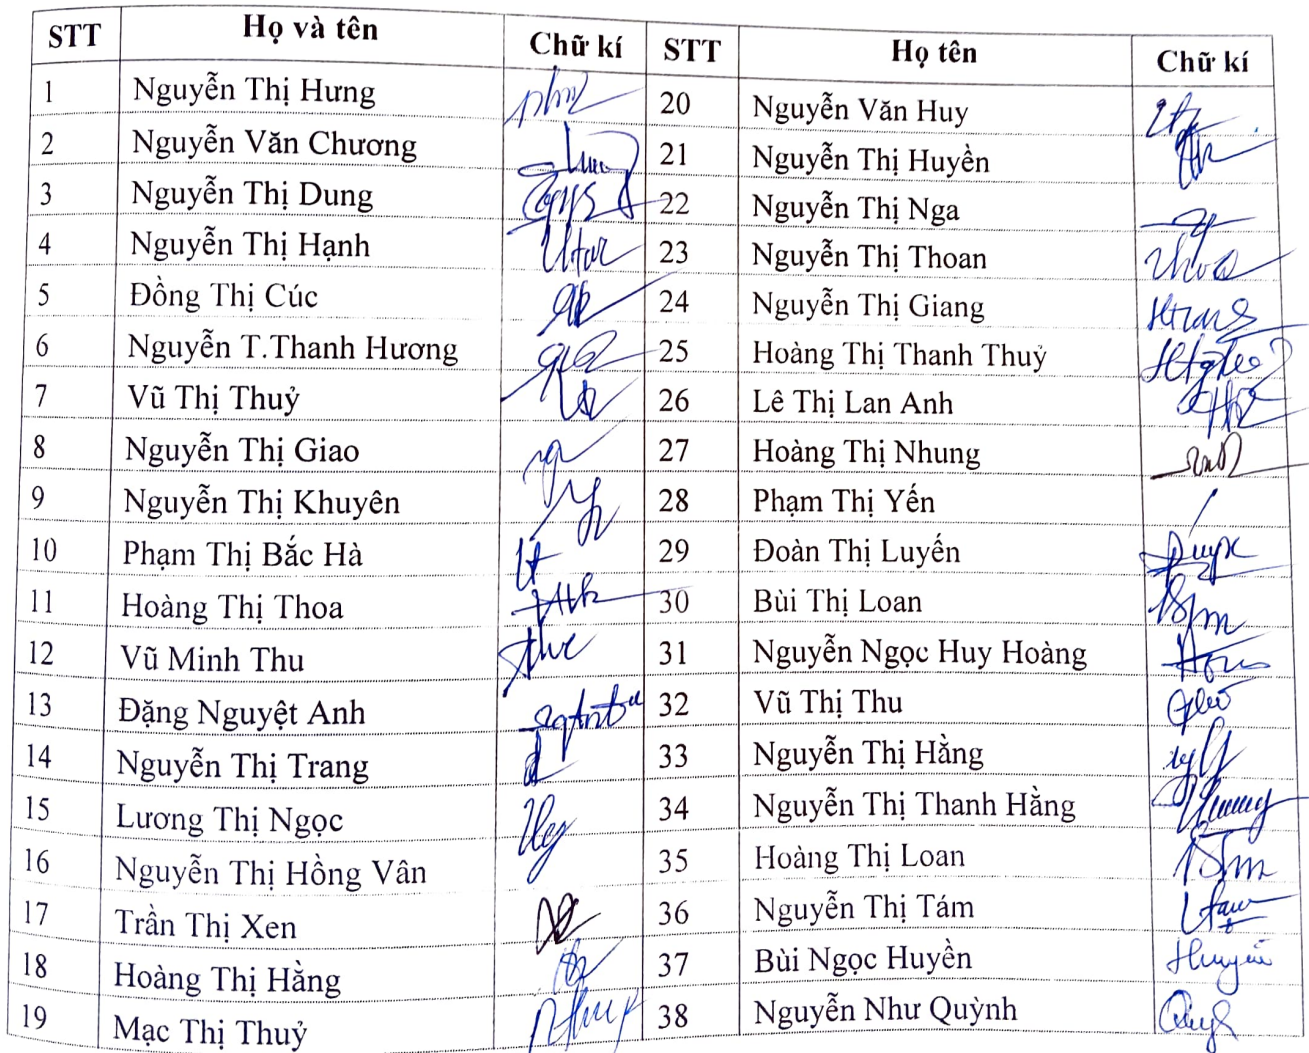 STT Họ và tên Chữ kí STT Họ tên Chữ kí
1 Nguyễn Thị Hưng 20 Nguyễn Văn Huy
2 Nguyễn Văn Chương 21 Nguyễn Thị Huyền
3 Nguyễn Thị Dung 22 Nguyễn Thị Nga
4 Nguyễn Thị Hạnh 23 Nguyễn Thị Thoan
5 Đồng Thị Cúc 24 Nguyễn Thị Giang
6 Nguyễn T.Thanh Hương 25 Hoàng Thị Thanh Thuỷ
7 Vũ Thị Thuỷ 26 Lê Thị Lan Anh
8 Nguyễn Thị Giao 27 Hoàng Thị Nhung
9 Nguyễn Thị Khuyên 28 Phạm Thị Yến
10 Phạm Thị Bắc Hà 29 Đoàn Thị Luyến
11 Hoàng Thị Thoa 30 Bùi Thị Loan
12 Vũ Minh Thu 31 Nguyễn Ngọc Huy Hoàng
13 Đặng Nguyệt Anh 32 Vũ Thị Thu
14 Nguyễn Thị Trang 33 Nguyễn Thị Hằng
15 Lương Thị Ngọc 34 Nguyễn Thị Thanh Hằng
16 Nguyễn Thị Hồng Vân 35 Hoàng Thị Loan
17 Trần Thị Xen 36 Nguyễn Thị Tám
18 Hoàng Thị Hằng 37 Bùi Ngọc Huyền
19 Mạc Thị Thuỷ 38 Nguyễn Như Quỳnh